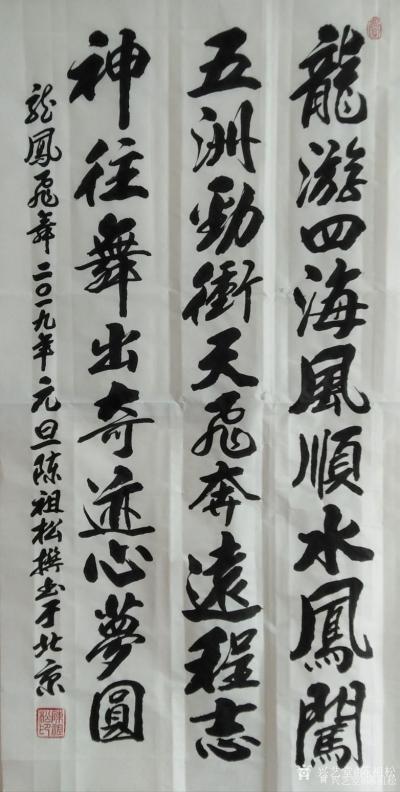 龍游四海風順水鳳闖
五洲勁衝天飛奔遠程志
神往舞出奇迹心夢圓
龙鳳飛舞二〇一九年元旦陈祖松撰书于北京